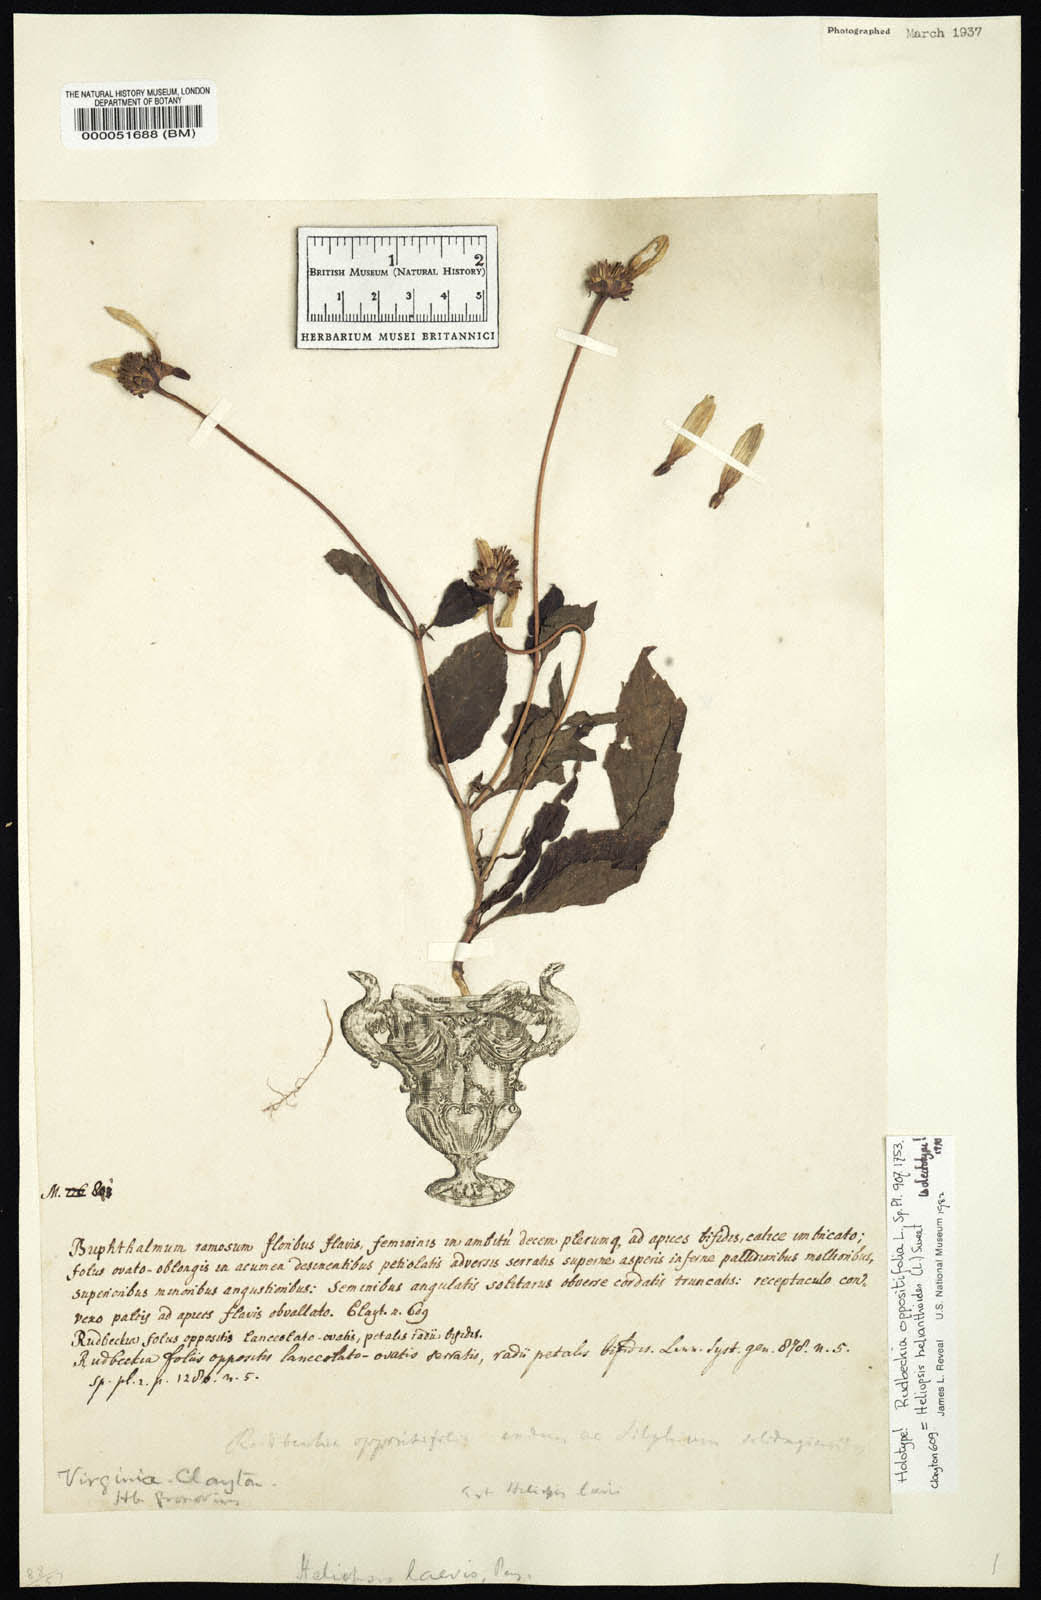 Photographed March 1937
THE NATURAL HISTORY MUSEUM, LONDON
DEPARTMENT OF BOTANY
000051688 (BM)
1 2
BRITISH MUSEUM (NATURAL HISTORY)
1 2 3 4 5
HERBARIUM MUSEI BRITANNICI
M.
Buphthalmum ramosum floribus flavis, femininis in ambitú decem plerumq, ad apices bifidis, calice imbricato;
foliis ovato-oblongis in acumen desinentibus petiolatis adversis serratis superne asperis inferne pallidioribus mollioribus,
superioribus minoribus angustioribus: Seminibus angulatis solitariis obverse cordatis truncatis: receptaculo con=
vexo paleis ad apices flavis obvallato. Clayt. n. 609
Rudbeckia foliis oppositis lanceolato-ovatis, petalis radii bifidis.
Rudbeckia foliis oppositis lanceolato-ovatis serratis, radii petalis bifidis. Linn. Syst. gen. 878. n. 5.
Sp. pl. 2. p. 1286. n. 5.
Rudbeckia oppositifolia ac Silphium
Virginia. Clayton.
Hb. Gronovius
Est Heliopsis laevis
Heliopsis laevis, Pers.
1
Holotype! Rudbeckia oppositifolia L., Sp. Pl. 907. 1753.
Clayton 609 = Heliopsis helianthoides (L.) Sweet
James L. Reveal U.S. National Museum 1982
lectotype!